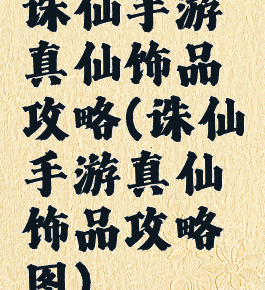 诛仙手游
真仙饰品
攻略(诛仙
手游真仙
饰品攻略
图)